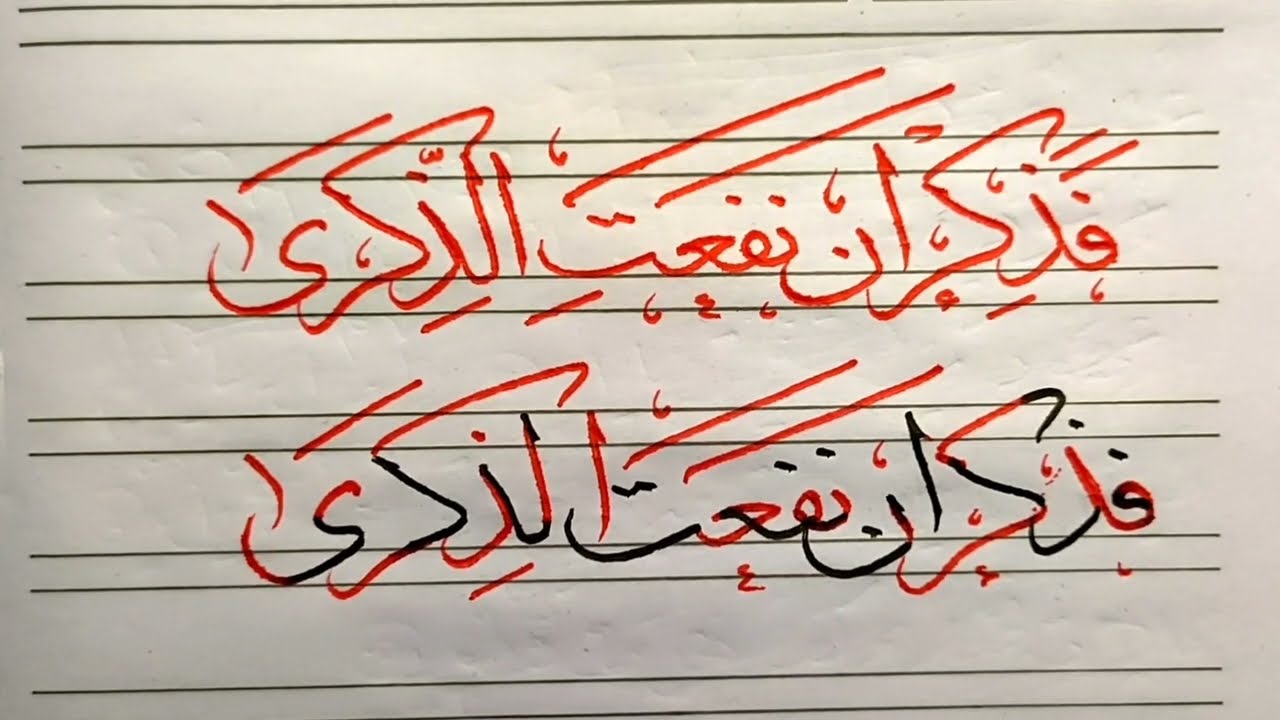 فَذَكِّرْ اِنْ نَفَعَتِ الذِّكْرَىٰ
فذكر ان نفعت الذكرى